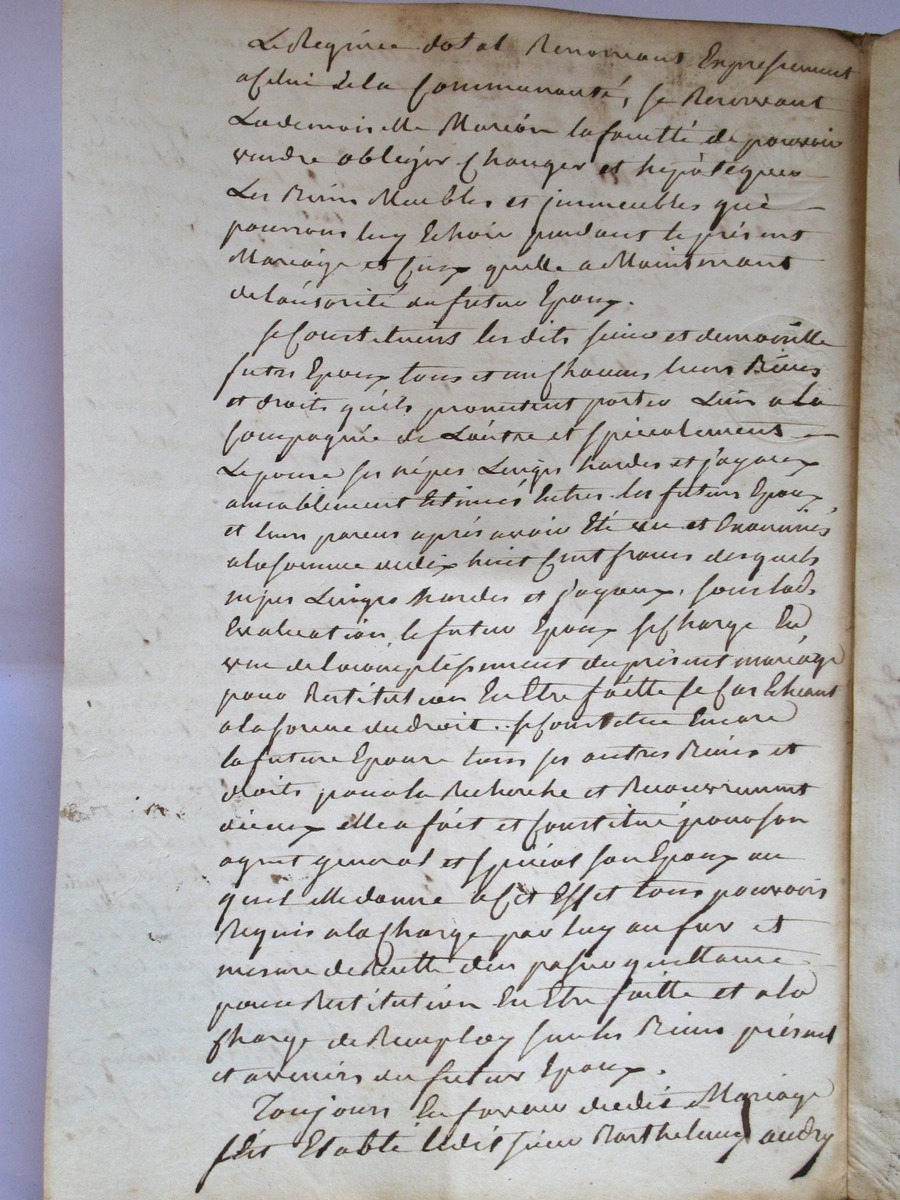 Le Regime dotal Renonsant Expressement
a Celui de la Communauté, se Reservant
La demoiselle Marion la faculté de pouvoir
vendre obliger Changer et hypotequer
Les Biens Meubles et jmmeubles qui
pourront luy Echoir pendant le présent
Mariage et Ceux quelle a Maintenant
de lautorité du futur Epoux.
se Constituent les dits sieur et demoiselle
futrs Epoux tous et un Chacuns leurs Biens
et droits quils promettent porter Lun a la
Compagnie de Lautre et spécialement
Lepouse ses nipes Linges hardes et joyaux
amiablement Estimés Entres les futurs Epoux
et leurs parens après avoir Eté vu et Examinés
a la somme de dix huit Cent francs desquels
nipes Linges hardes et joyaux, sous lad.
Evaluation, le futur Epoux se Charge En
vue de lacomplissement du présent mariage
pour Restitution En Etre faitte le Cas Echeant
a la forme du droit.. se Constitue Encore
la future Epouse tous ses autres Biens et
droits pour la Recherche et Recouvrement
diceux elle a fait et Constitué pour son
agent general et special son Epoux au
quel elle donne a Cet Effet tous pouvoirs
Requis a la Charge par luy au fur et
mesure de Recette den passer quittance
pour Restitution En Etre faitte et a la
Charge de Remploy sur les Biens présent
et avenirs du futur Epoux.
Toujours En faveur dudit Mariage
s'est Etabli ledit sieur Barthelemy audry